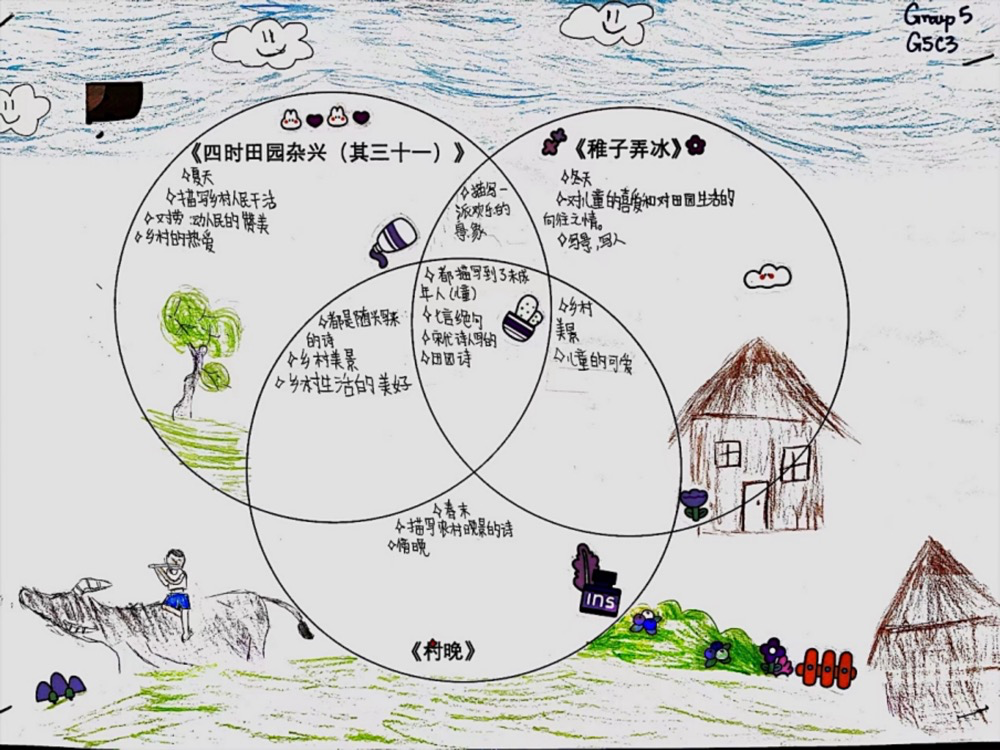 Group 5
G5C3
《四时田园杂兴（其三十一）》
夏天
描写乡村人民干活
对劳动人民的赞美
乡村的热爱
《稚子弄冰》
冬天
对儿童的喜爱和对田园生活的
向往之情。
写景,写人
描写一
派欢乐的
景象
都描写到了未成
年人(儿童)
七言绝句
宋代诗人写的
田园诗
都是随兴写来
的诗
乡村美景
乡村生活的美好
乡村
美景
儿童的可爱
春末
描写农村晚景的诗
傍晚
《村晚》
ins